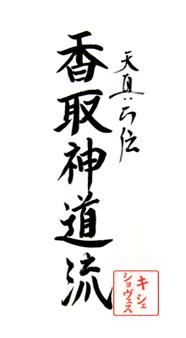 天真正伝
香取神道流
キシェ
ショヴェス